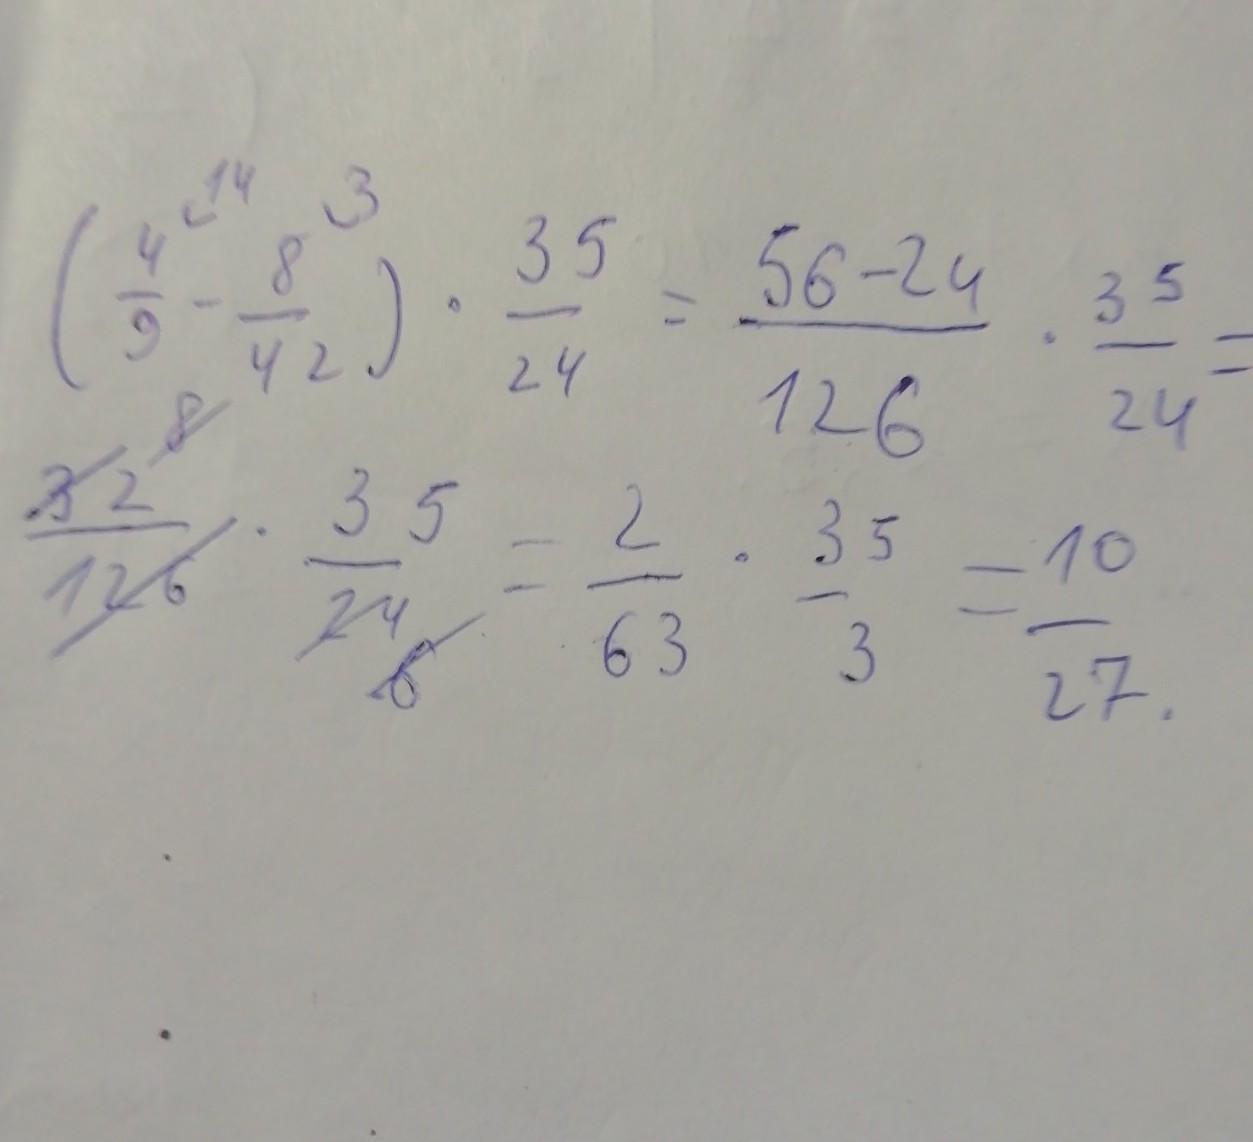 (4/9 ⌣14 - 8/42 ⌣3) · 35/24 = 56-24/126 · 35/24 =
32 8/126 · 35/24 6 = 2/63 · 35/3 = 10/27.